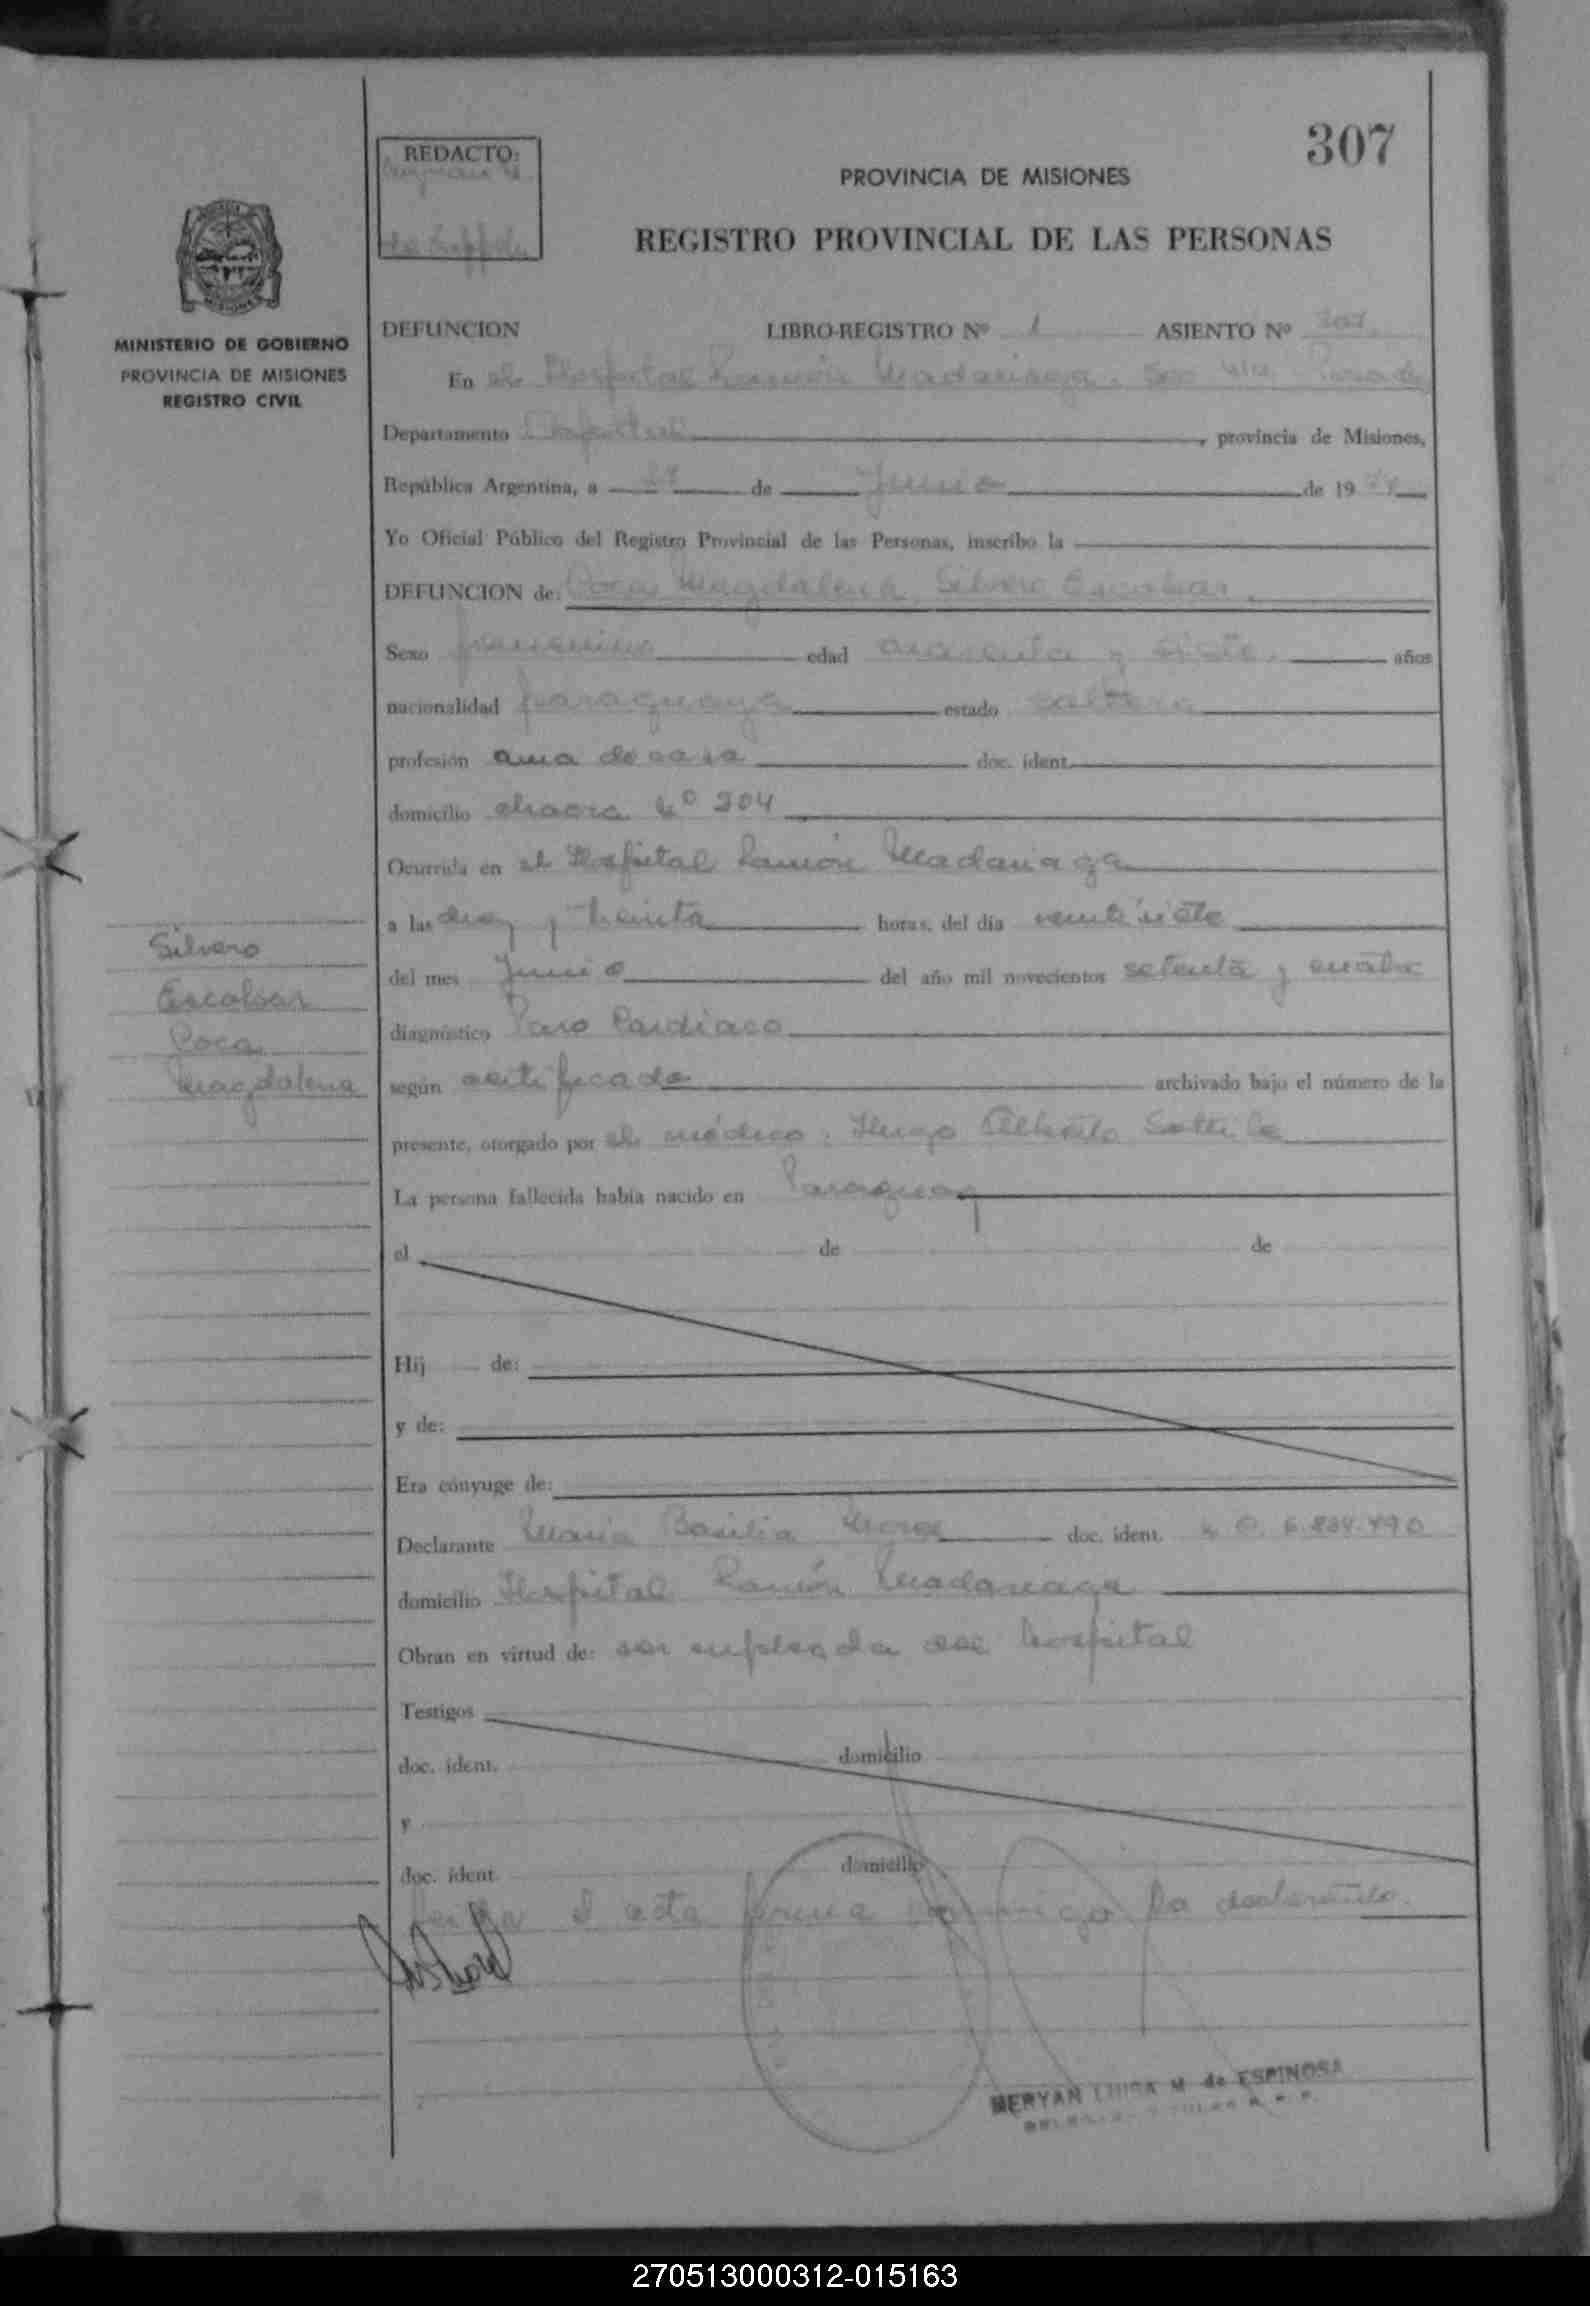 307
REDACTO:
PROVINCIA DE MISIONES
REGISTRO PROVINCIAL DE LAS PERSONAS
MINISTERIO DE GOBIERNO
PROVINCIA DE MISIONES
REGISTRO CIVIL
DEFUNCION LIBRO-REGISTRO Nº 1 ASIENTO Nº 307
En el Hospital Ramón Madariaga
Departamento Capital, provincia de Misiones,
República Argentina, a 27 de Junio de 1974
Yo Oficial Público del Registro Provincial de las Personas, inscribo la
DEFUNCION de: Magdalena Silvero Escobar
Sexo femenino edad cuarenta y siete años
nacionalidad paraguaya estado soltera
profesión ama de casa doc. ident.
domicilio chacra Nº 204
Ocurrida en el Hospital Ramón Madariaga
a las diez y treinta horas, del día veintisiete
del mes Junio del año mil novecientos setenta y cuatro
diagnóstico Paro Cardiaco
según certificado archivado bajo el número de la
presente, otorgado por el médico: Hugo Alberto
La persona fallecida había nacido en Paraguay
el de de
Hij de:
y de:
Era cónyuge de:
Declarante Maria Basilia doc. ident. 6.834.490
domicilio Hospital Ramón Madariaga
Obran en virtud de: ser empleada del hospital
Testigos
doc. ident. domicilio
y
doc. ident. domicilio
el acta firma conmigo la declarante.
MERYAN LUISA M. de ESPINOSA
Silvero
Escobar
Magdalena
270513000312-015163